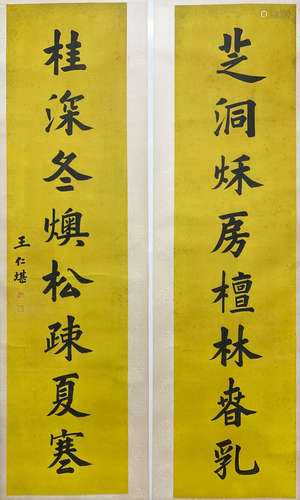 芝洞秌房檀林萅乳
桂深冬燠松疎夏寒
王仁堪